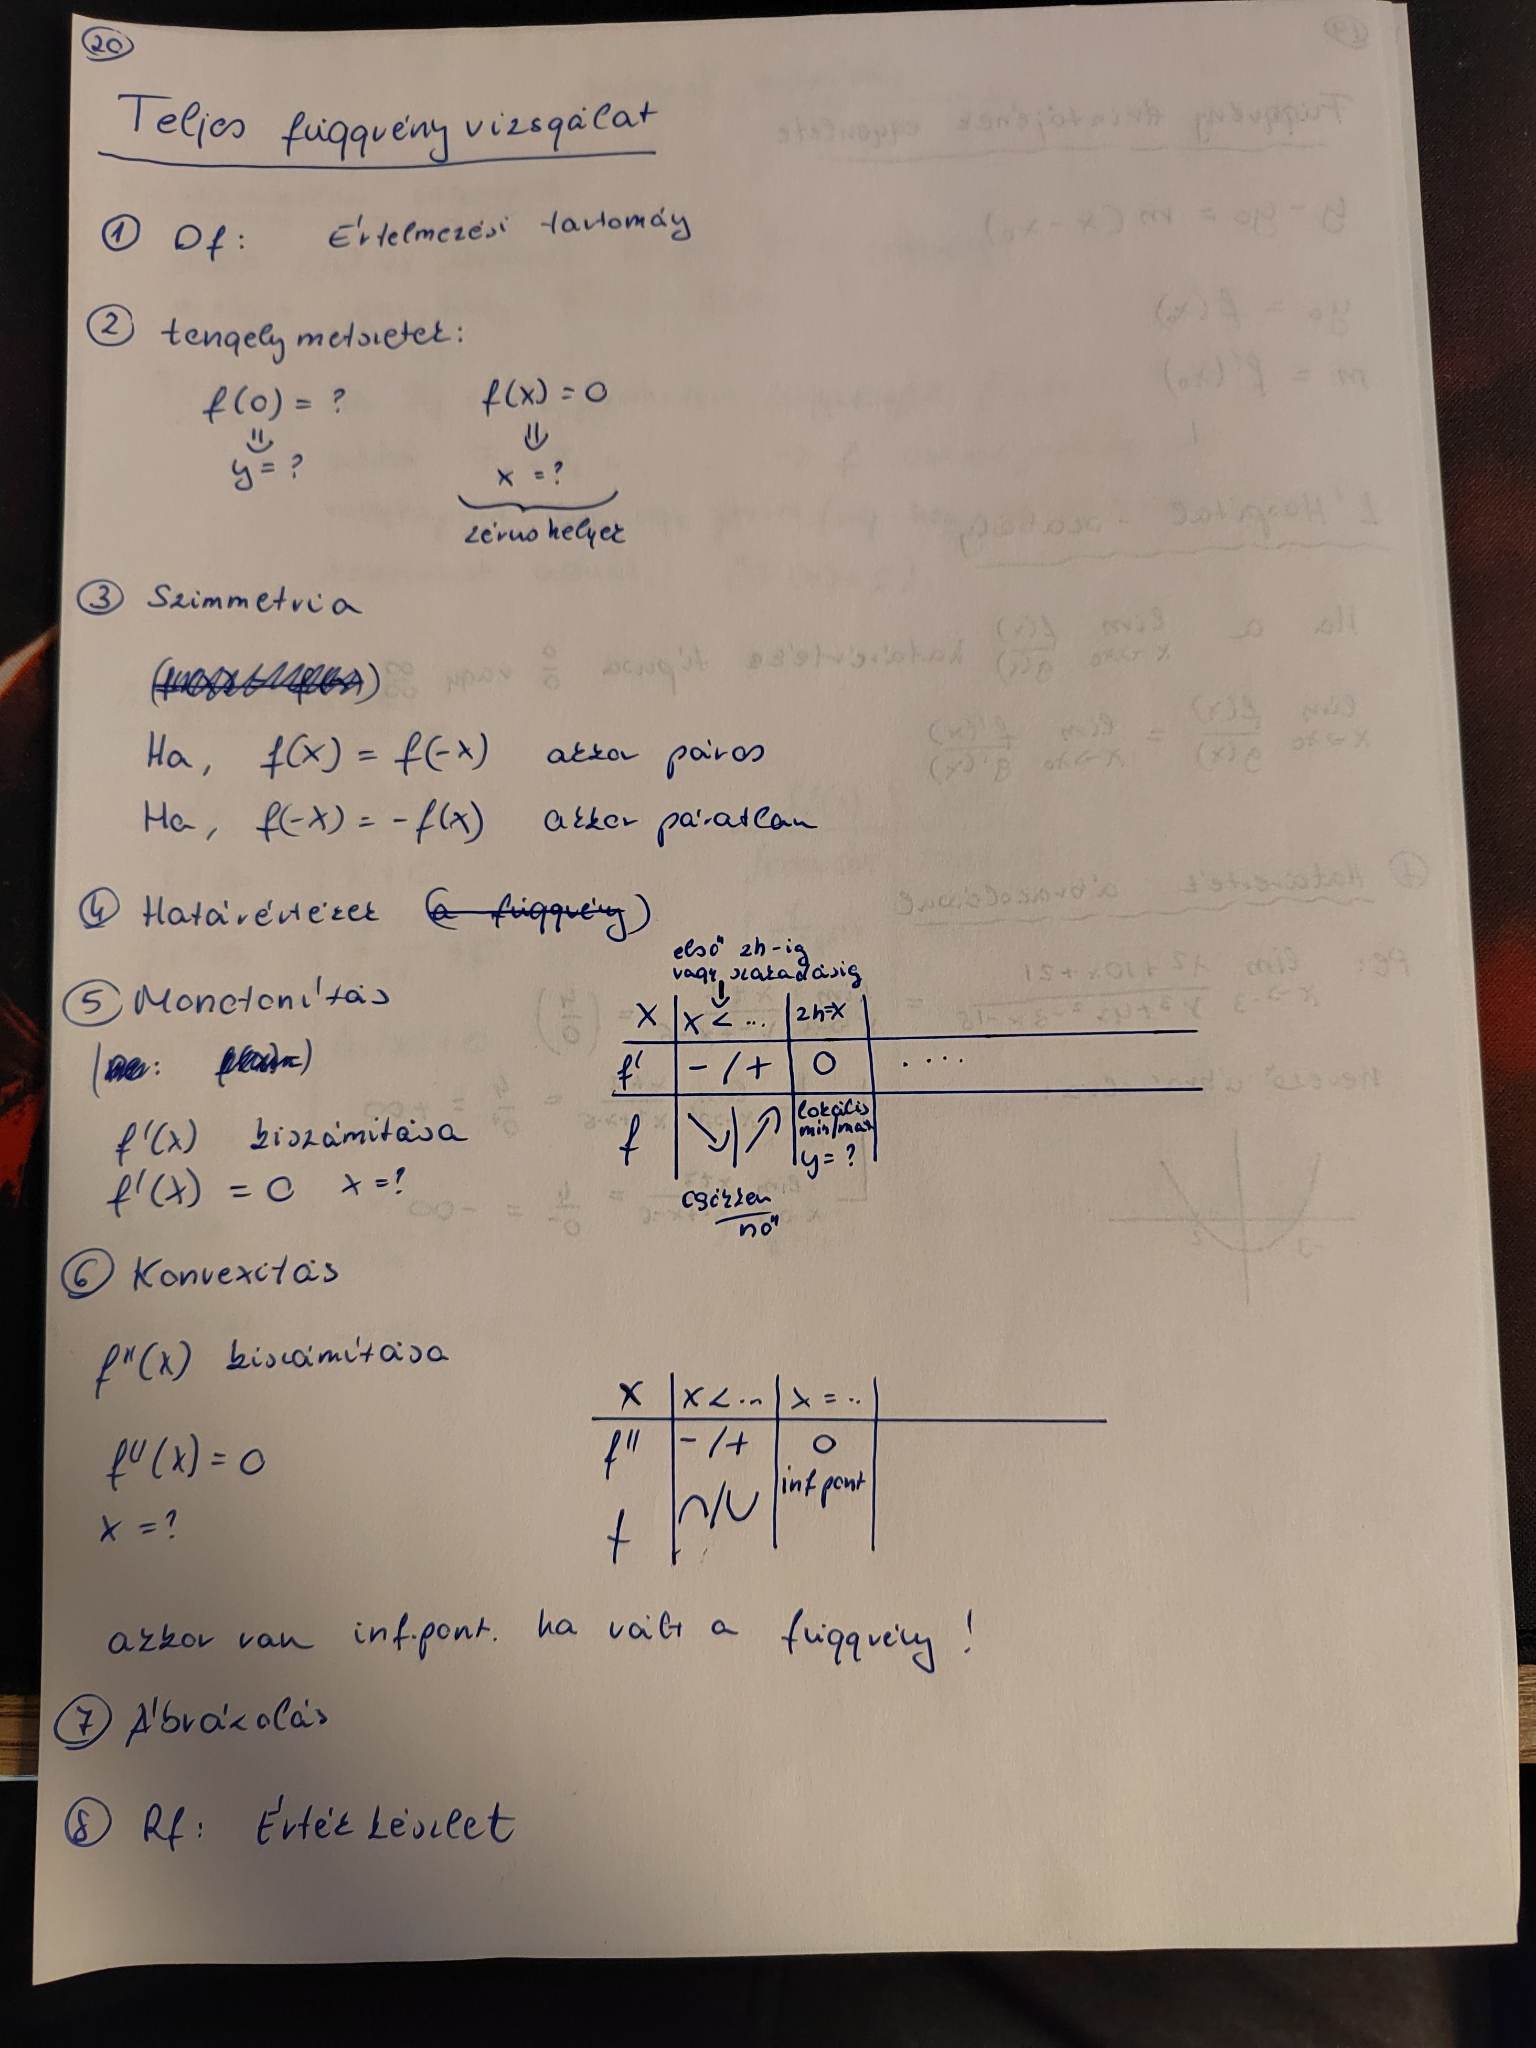 20
Teljes függvény vizsgálat
1 Df: Értelmezési tartomáy
2 tengely metszetek:
f(0) = ? f(x) = 0
⇓ ⇓
y = ? x = ?
zérus helyek
3 Szimmetria
Ha, f(x) = f(-x) akkor páros
Ha, f(-x) = -f(x) akkor páratlan
4 Határértékek (a függvény)
5 Monotonitás
első zh-ig
vagy szakadásig
↓
x | x < ... | zh=x
f' | - / + | 0 | ....
f | ↘ | ↗ | lokális min/max y = ?
csökken
nő
f'(x) kiszámítása
f'(x) = 0 x = ?
6 Konvexitás
f''(x) kiszámítása
f''(x) = 0
x = ?
x | x < ... | x = ..
f'' | - / + | 0
f | ∩ / ∪ | inf pont
akkor van inf.pont. ha vált a függvény!
7 Ábrázolás
8 Rf: Érték készlet